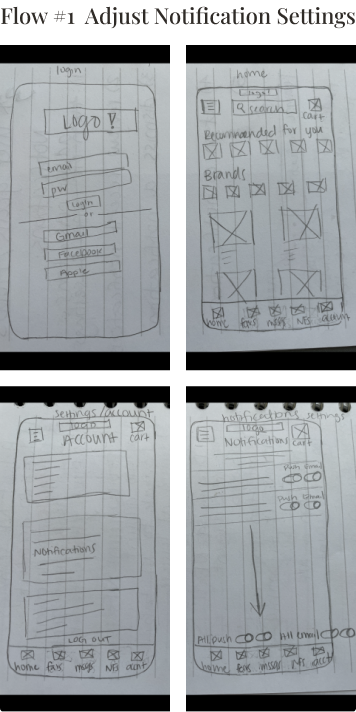 Flow #1 Adjust Notification Settings
login
LOGO!
email
pw
Login
or
Gmail
Facebook
Apple
home
Logo!
search
cart
Recommended for you
Brands
home favs msgs NFS account
settings/account
logo
Account
cart
Notifications
LOG OUT
home favs msgs NFS acnt
notifications settings
logo
Notifications
cart
Push Email
Push Email
All push All email
home favs msgs NFS acct